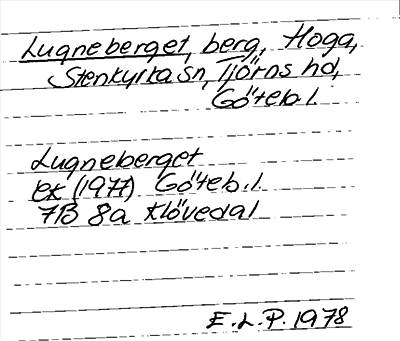 Lugneberget, berg, Hoga,
Stenkyrka sn, Tjörns hd,
Göteb.l.
Lugneberget
ek (1977) Göteb.l.
7B 8a Klövedal
E.L.P. 1978